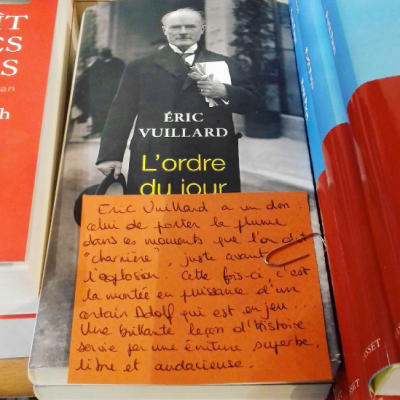 ÉRIC
VUILLARD
L'ordre
du jour
Eric Vuillard a un don
celui de porter la plume
dans ces moments que l'on dit
"charnière", juste avant
l'explosion. Cette fois-ci, c'est
la montée en puissance d'un
certain Adolf qui est en jeu...
Une brillante leçon d'histoire
servie par une écriture superbe,
libre et audacieuse.